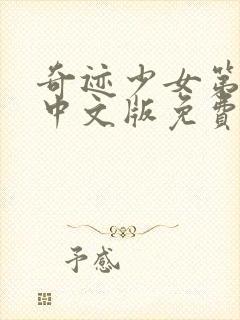 奇迹少女第
中文版免费
予感